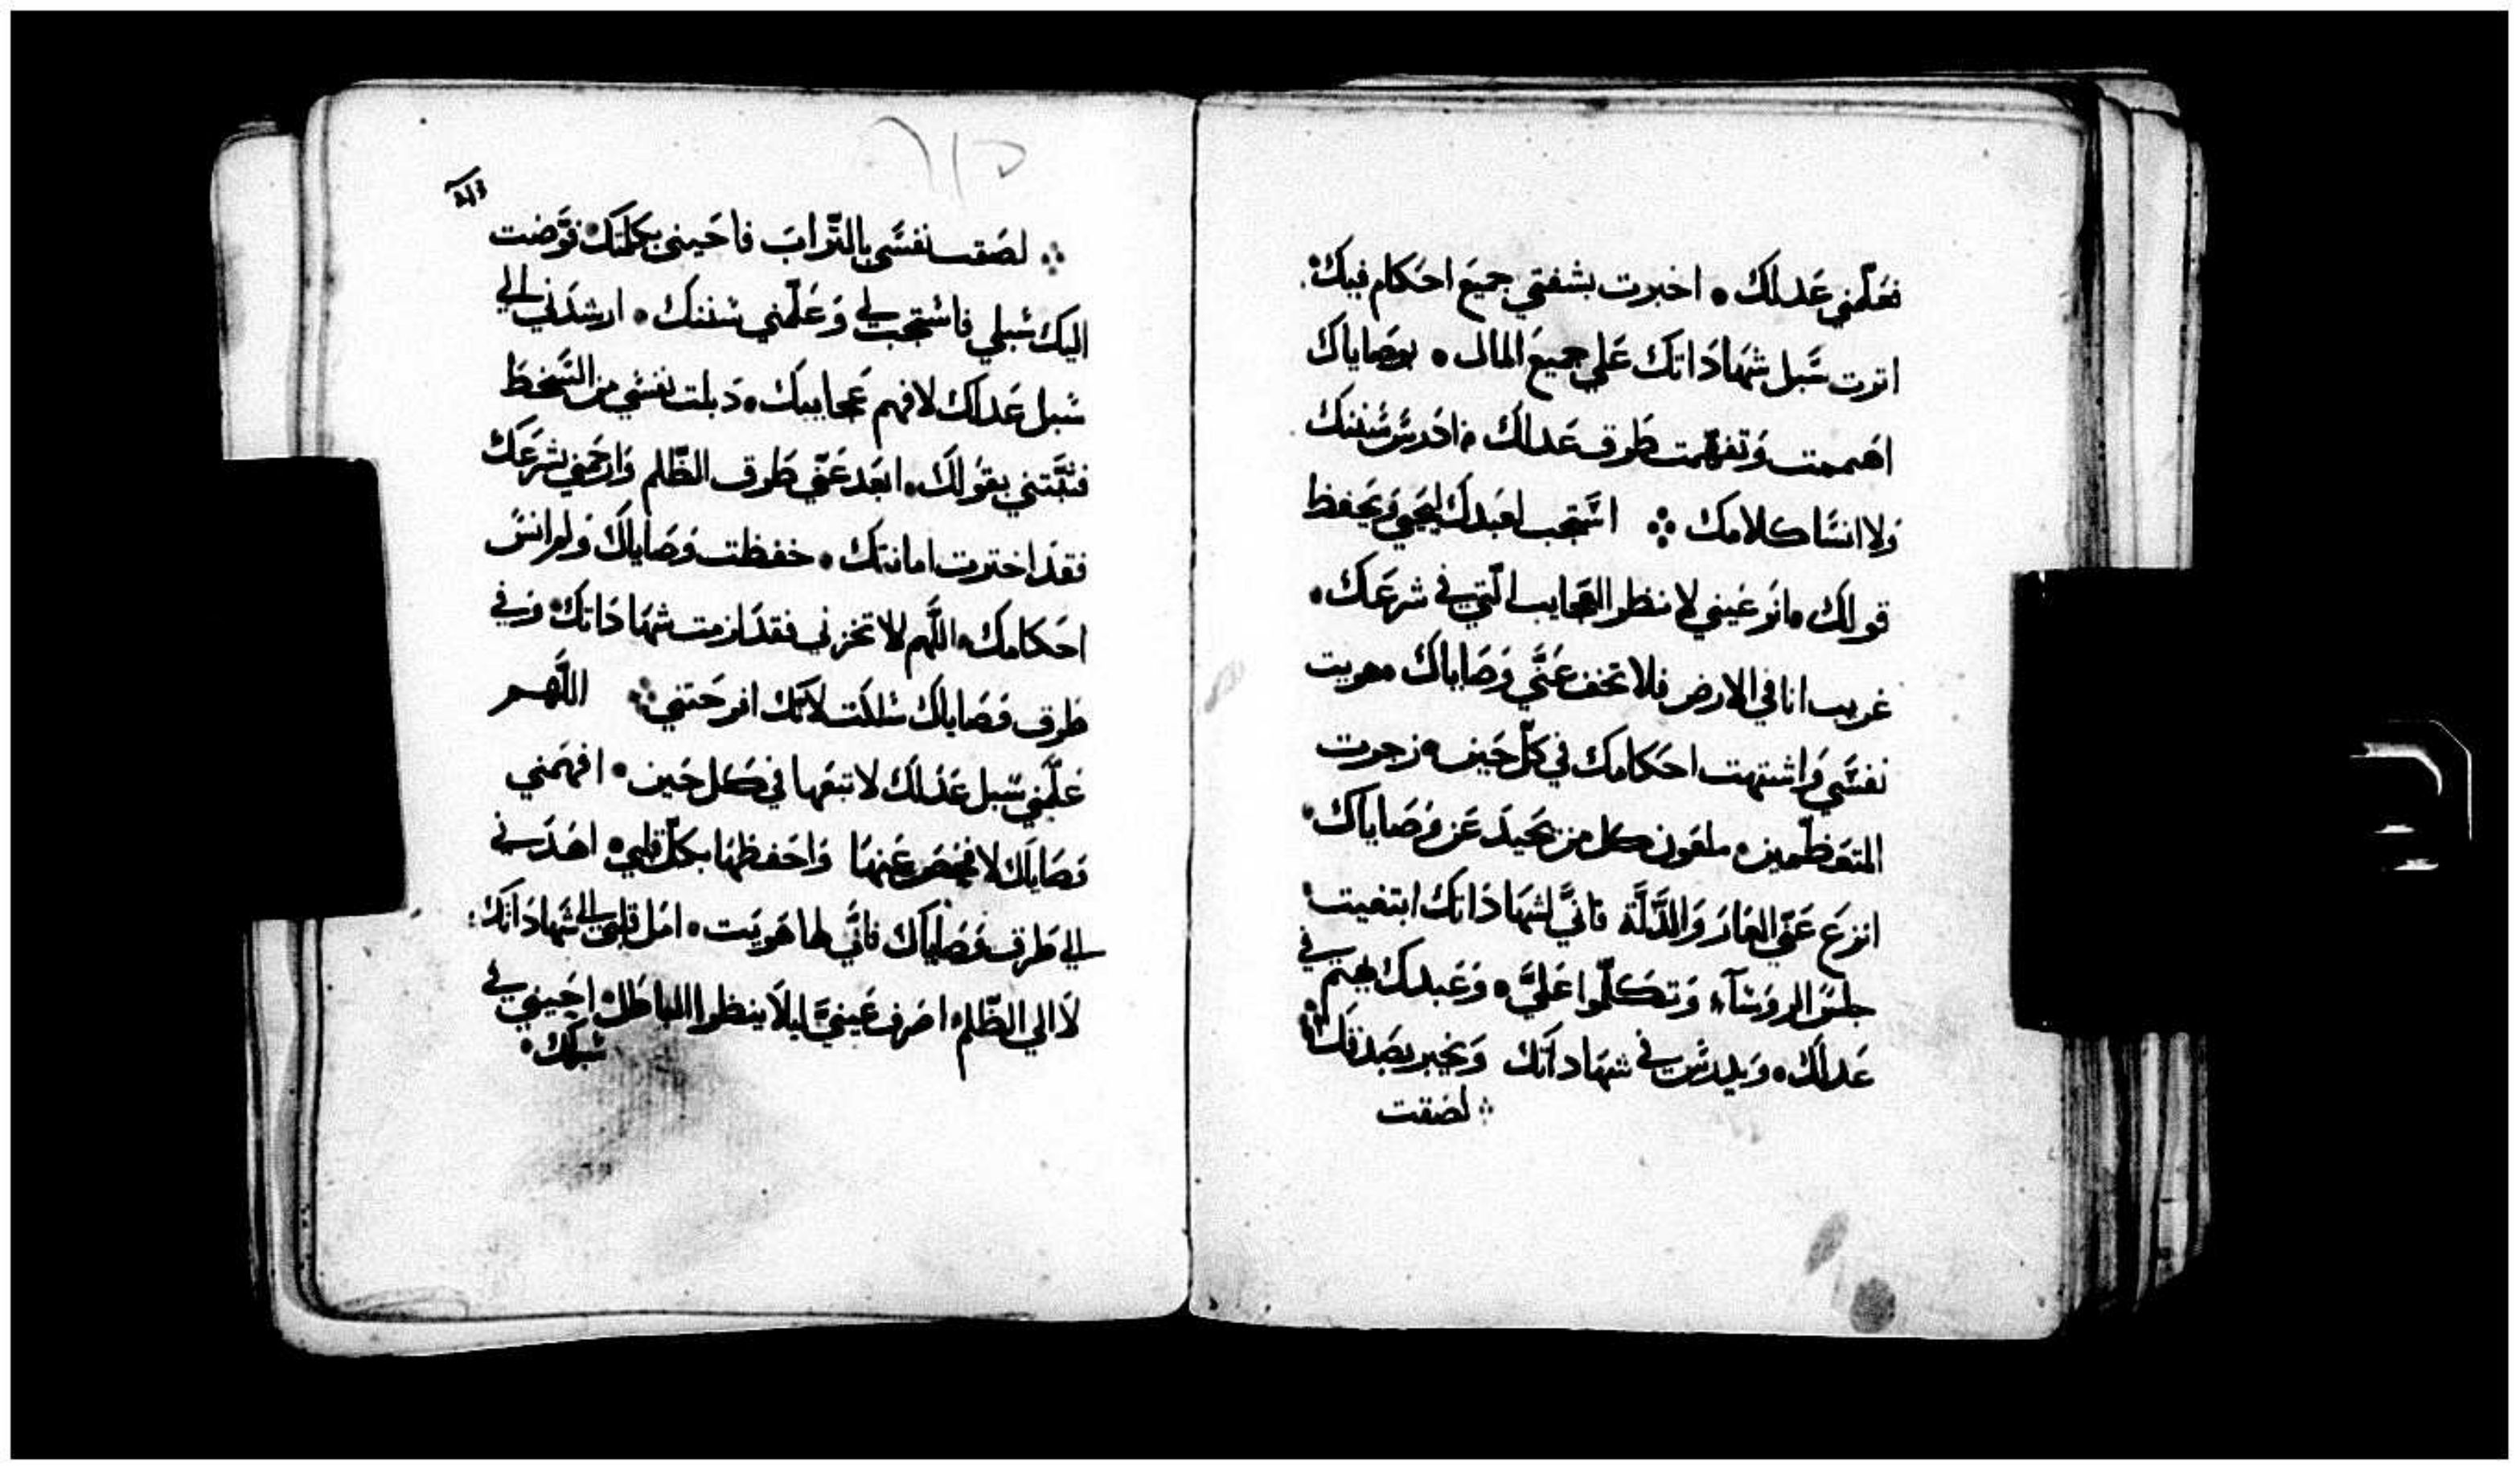 فعَلّمني عَدلك • اخبرت بشفتي جميعَ احَكام فيك •
اترت سَّبل شهَادَاتك عَلي جميعَ المال • بوصَاياك
اهَممت وَتفهّمت طرق عَدلك • ادرسُ سُننك
وَلا انسَا كلامك ∴ استَّجب لعَبدك ليحَيي وَيحَفظ
قولك • انر عَيني لانظر العَجايب الّتي في شرعَك •
غريب انا في الارض فلا تخف عَنّي وَصَاياك • هويت
نفسَّي وَاشتهت احَكامك في كلّ حَين • زجرت
المتعَظّمين • ملعَون كل من يحَيد عَن وَصَاياك •
انزع عَنّي العَارَ وَالذّلّة فانّي لشهَادَاتك ابتغيت •
جلسَ الروسَآء وَتكَلّموا عَليّ • وَعَبدك يهتم في
عَدلك • وَيدرسَ في شهَادَاتك وَيخبر بصَدقك ∴
∴ لصَقت
∴ لصَقت نفسَّي بالتّراب فاحَيني بكلمتك • فوَّضت
اليك سَبلي فاسَتجب لي وَعَلّمني سَننك • ارشدَني الي
سَبل عَدلك لافهم عَجاييبك • دَبلت نفسَي من السَّخط
فثبّتني بقولك • ابعَد عَنّي طرق الظّلم وَارحَمني بشرعَك
فقدَ اخترت امانتك • حفظت وَصَاياك وَلم انسَ
احَكامك • اللّهم لا تخزني فقدَ لزمت شهَادَاتك • وَفي
طرق وَصَاياك سَلكت لانّك افرحَتني ∴ اللّهم
عَلّمني سَّبل عَدلك لاتبعَها في كل حَين • افهَمني
وَصَاياك لافحَص عَنهَا وَاحَفظهَا بكلّ قلبي • اهَدَني
الي طرق وَصَاياك فانّي لها هَويَت • امَل قلبي الي شهَادَاتك •
لَا الي الظّلم • اصَرف عَينيّ ليلَا ينظرا الباطل • احَييني في
سَبلك •